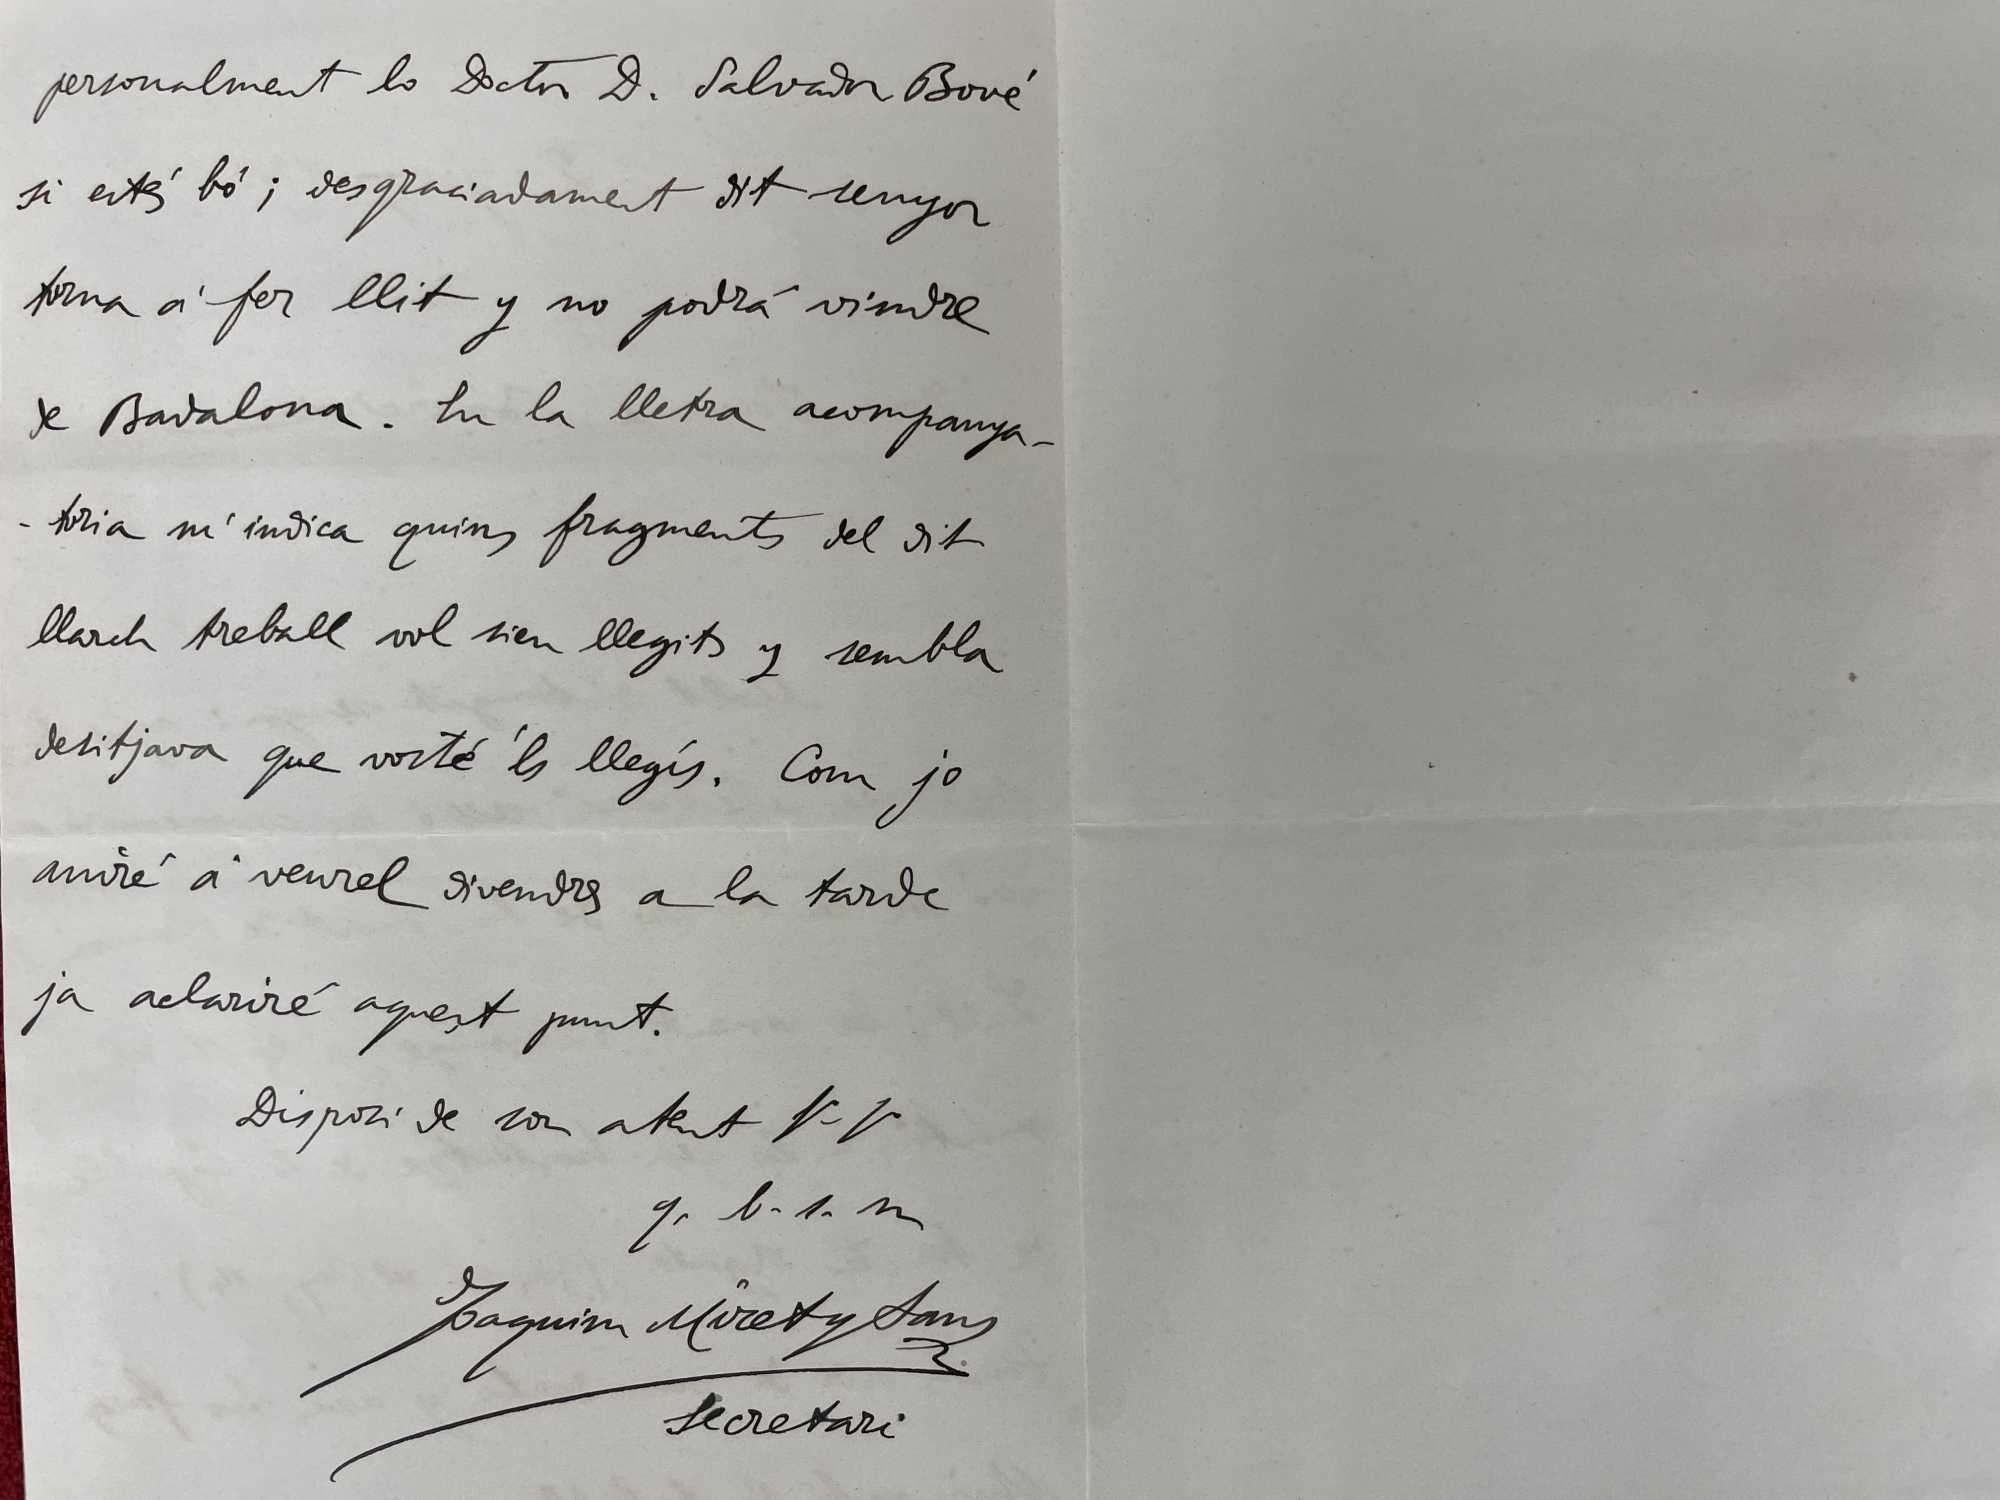 personalment lo Doctor D. Salvador Bové
si está bó; desgraciadament dit senyor
torna á fer llit y no podrá vindre
de Badalona. En la lletra acompanya-
-toria m'indica quins fragments del dit
llarch treball vol sien llegits y sembla
desitjava que vosté 'ls llegís. Com jo
aniré á veurel divendres a la tarde
ja aclariré aquest punt.
Disposi de son atent s. s.
q. b. s. m
Joaquim Miret y Sans
Secretari